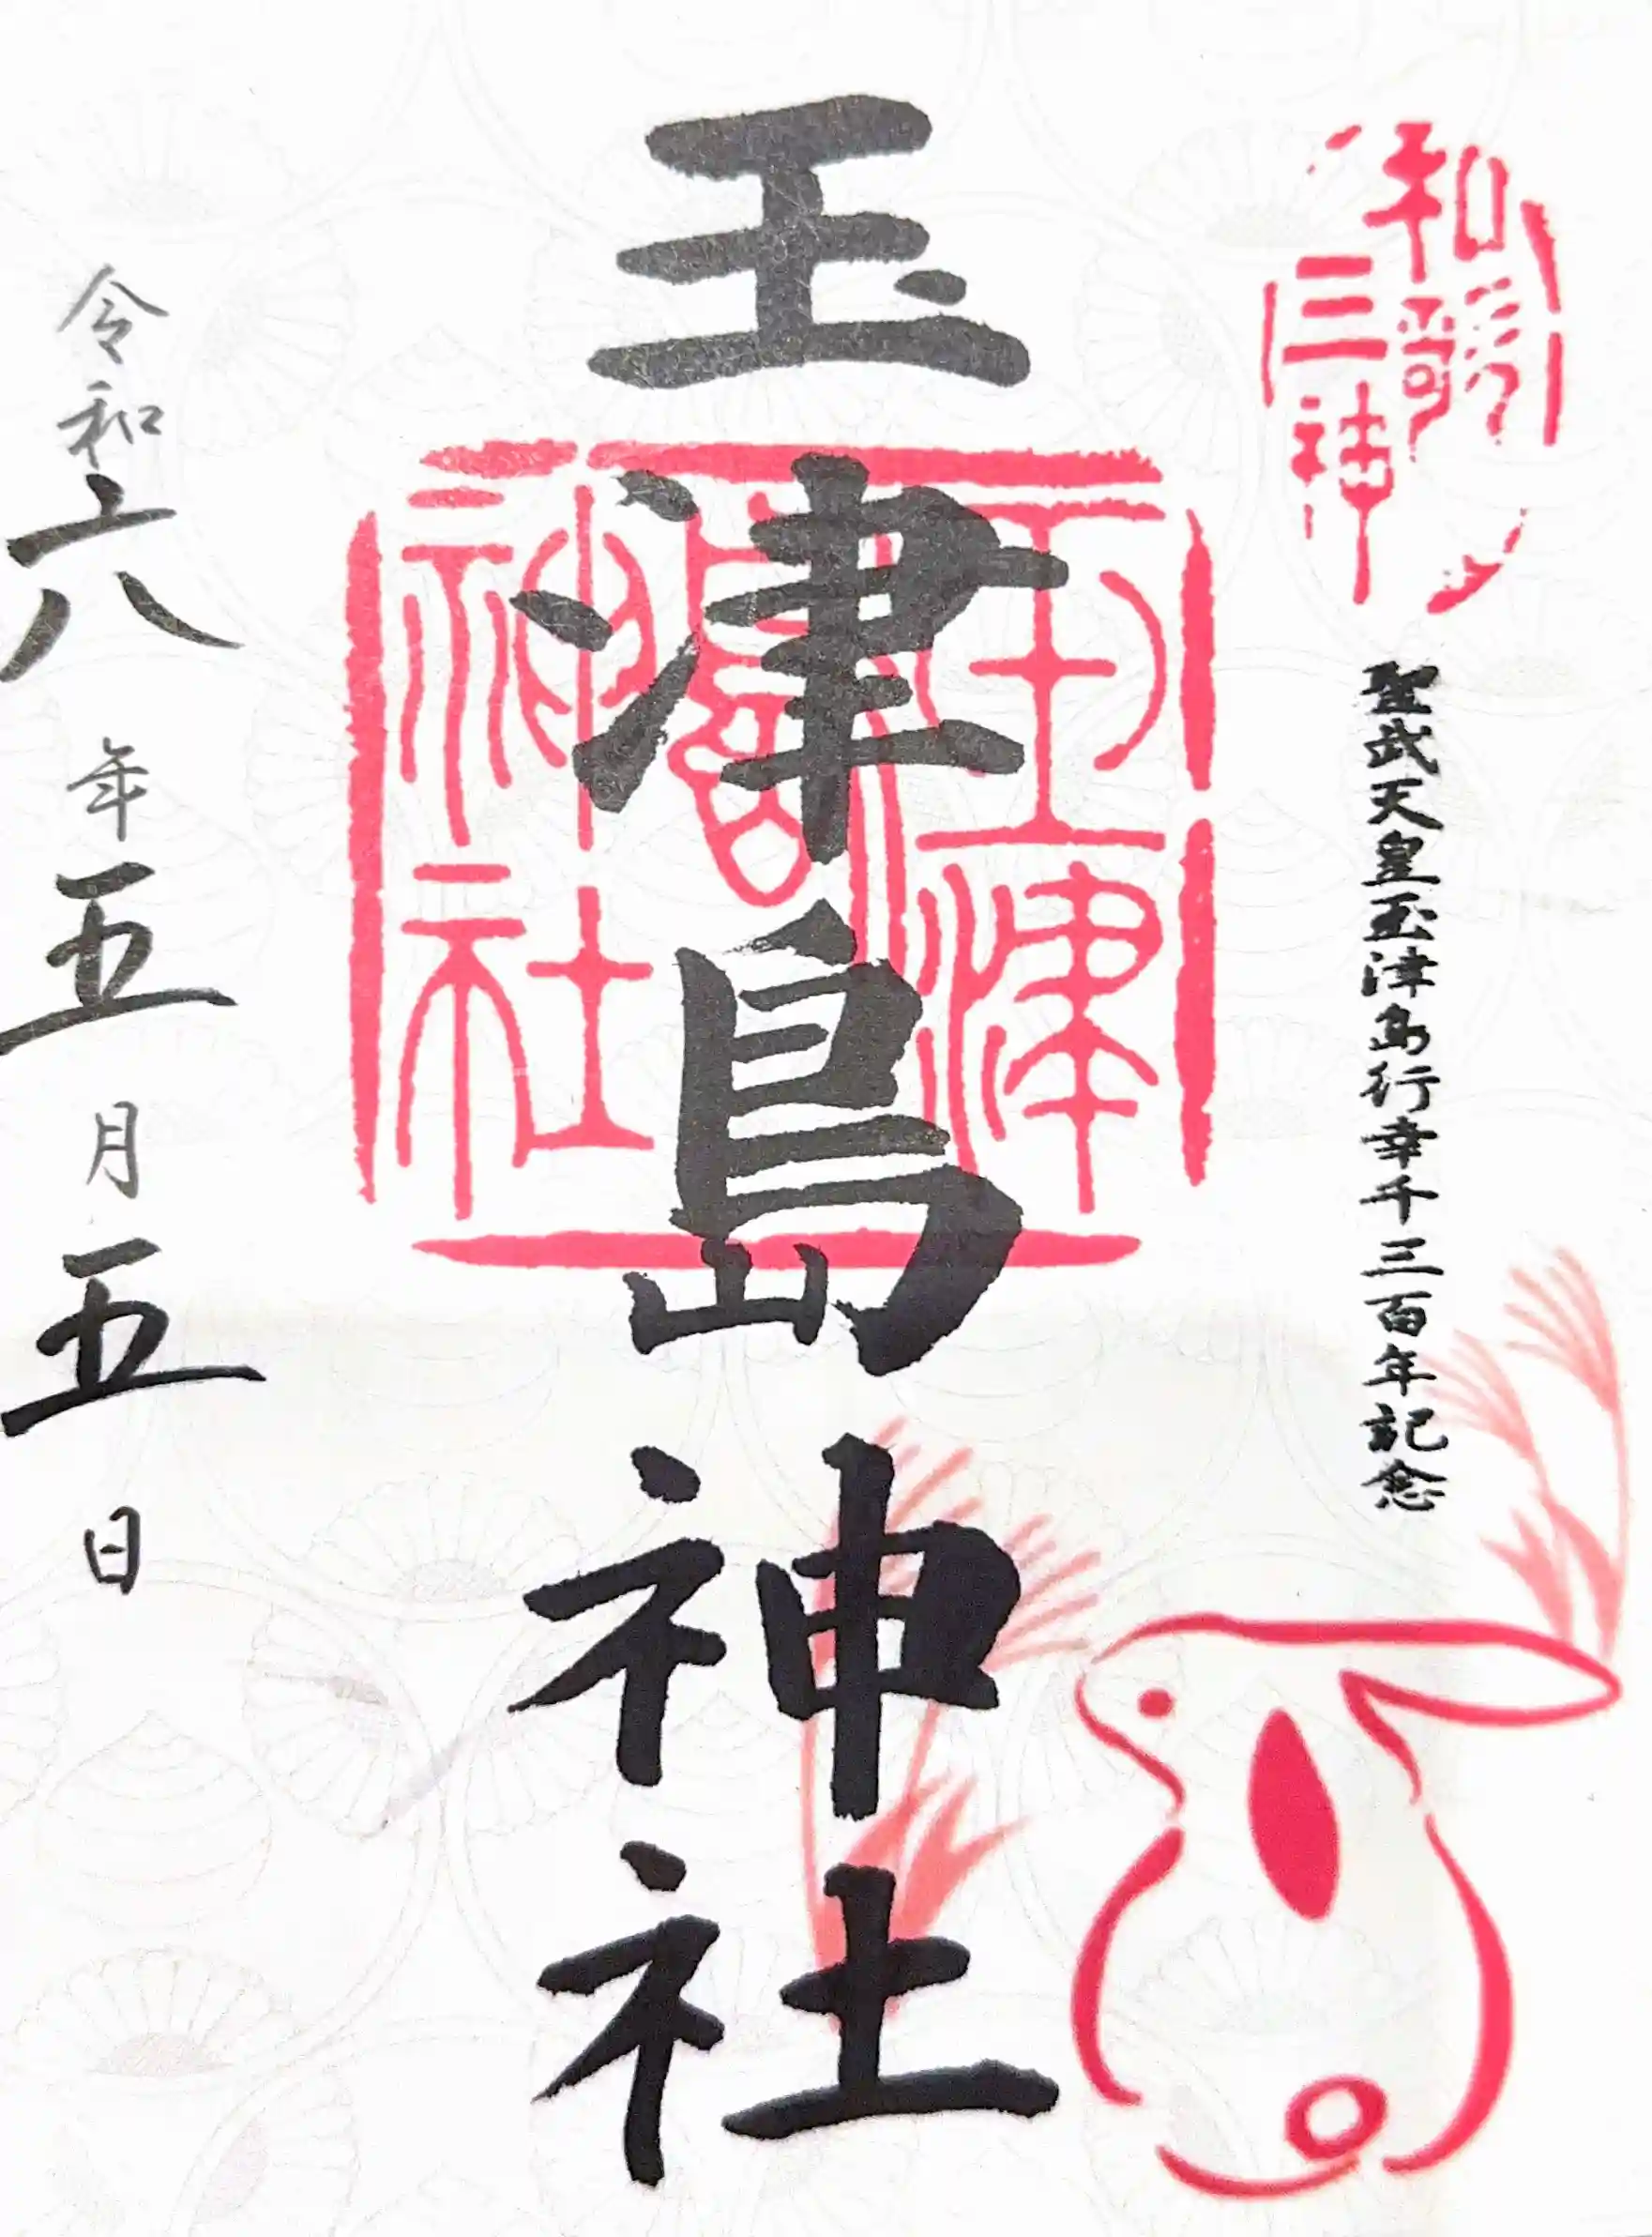 和歌三神
聖武天皇玉津島行幸千三百年記念
玉津島神社
玉津島神社
令和六年五月五日